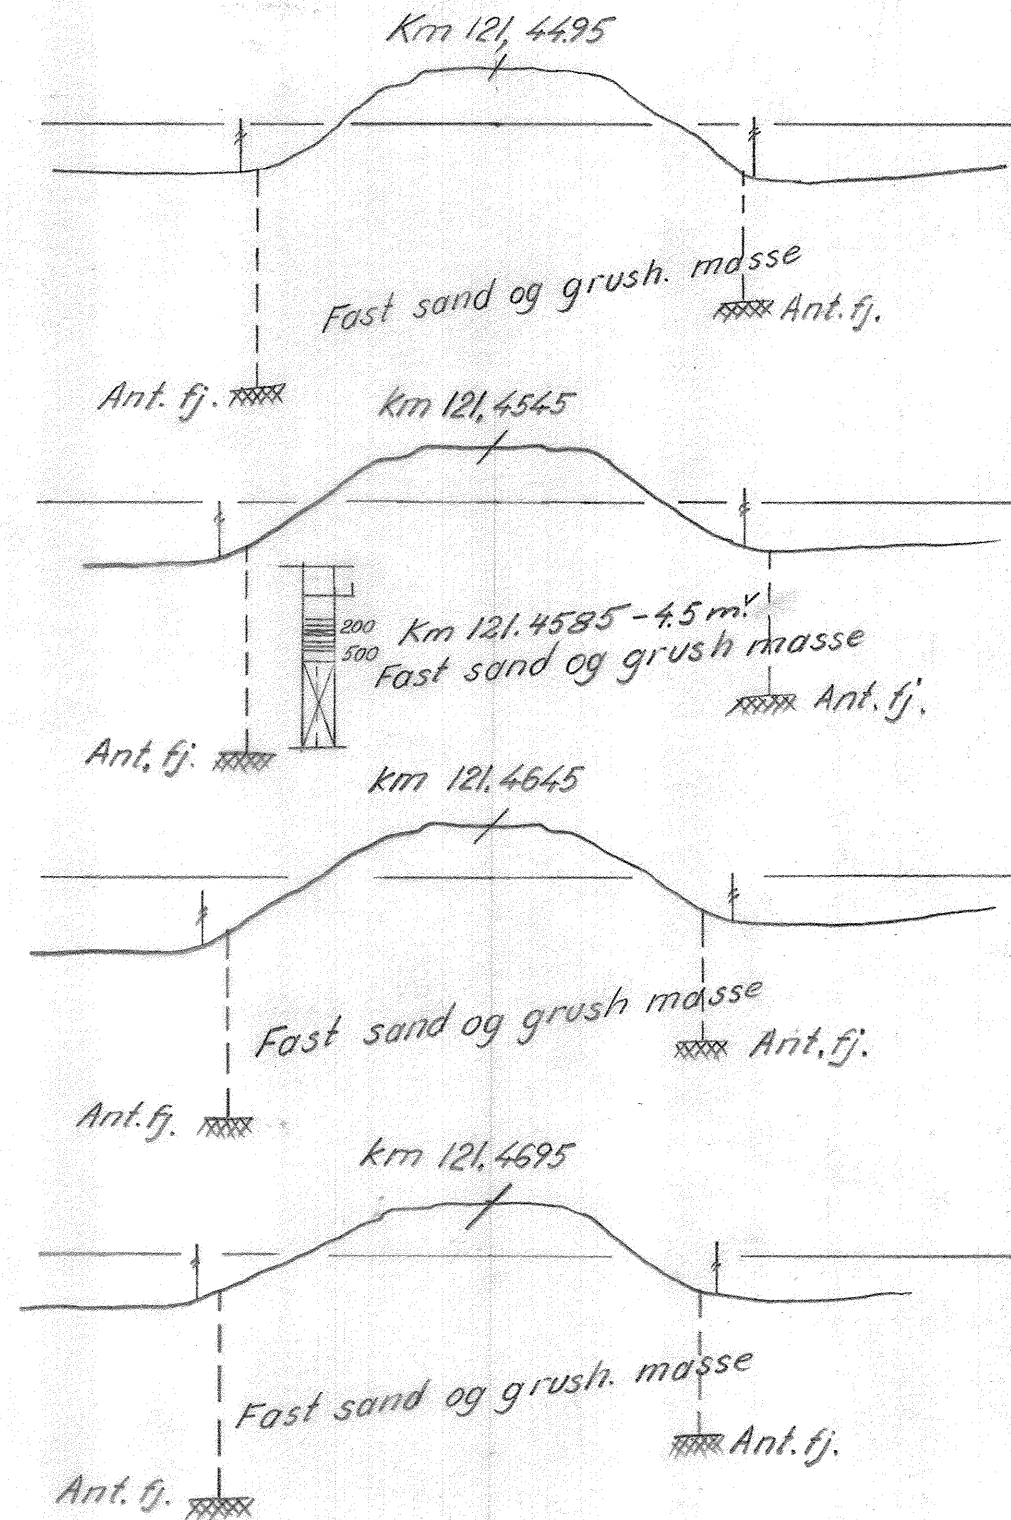 Km 121, 4495
Fast sand og grush. masse
Ant. fj.
Ant. fj.
km 121, 4545
200
500
Km 121. 4585 - 4.5 m. v
Fast sand og grush masse
Ant. fj.
Ant. fj.
km 121. 4645
Fast sand og grush masse
Ant. fj.
Ant. fj.
km 121. 4695
Fast sand og grush. masse
Ant. fj.
Ant. fj.